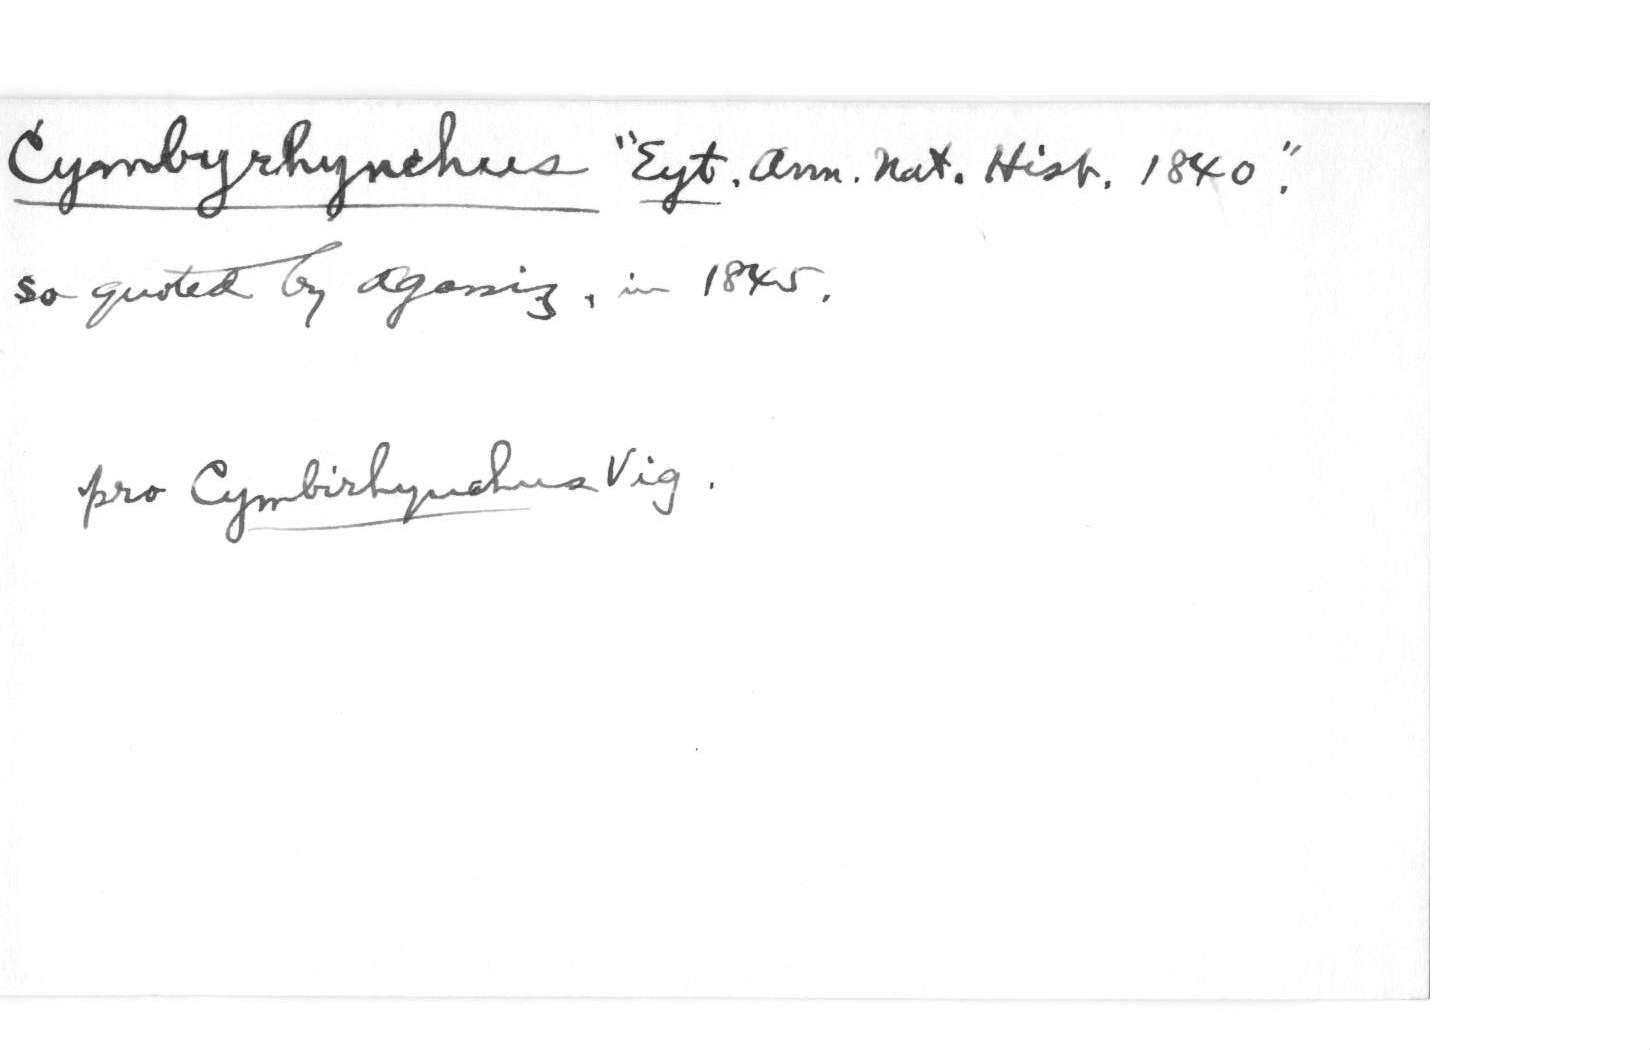 Cymbyrhynchus "Eyt. Ann. Nat. Hist. 1840".
so quoted by Agassiz, in 1845.
pro Cymbirhynchus Vig.